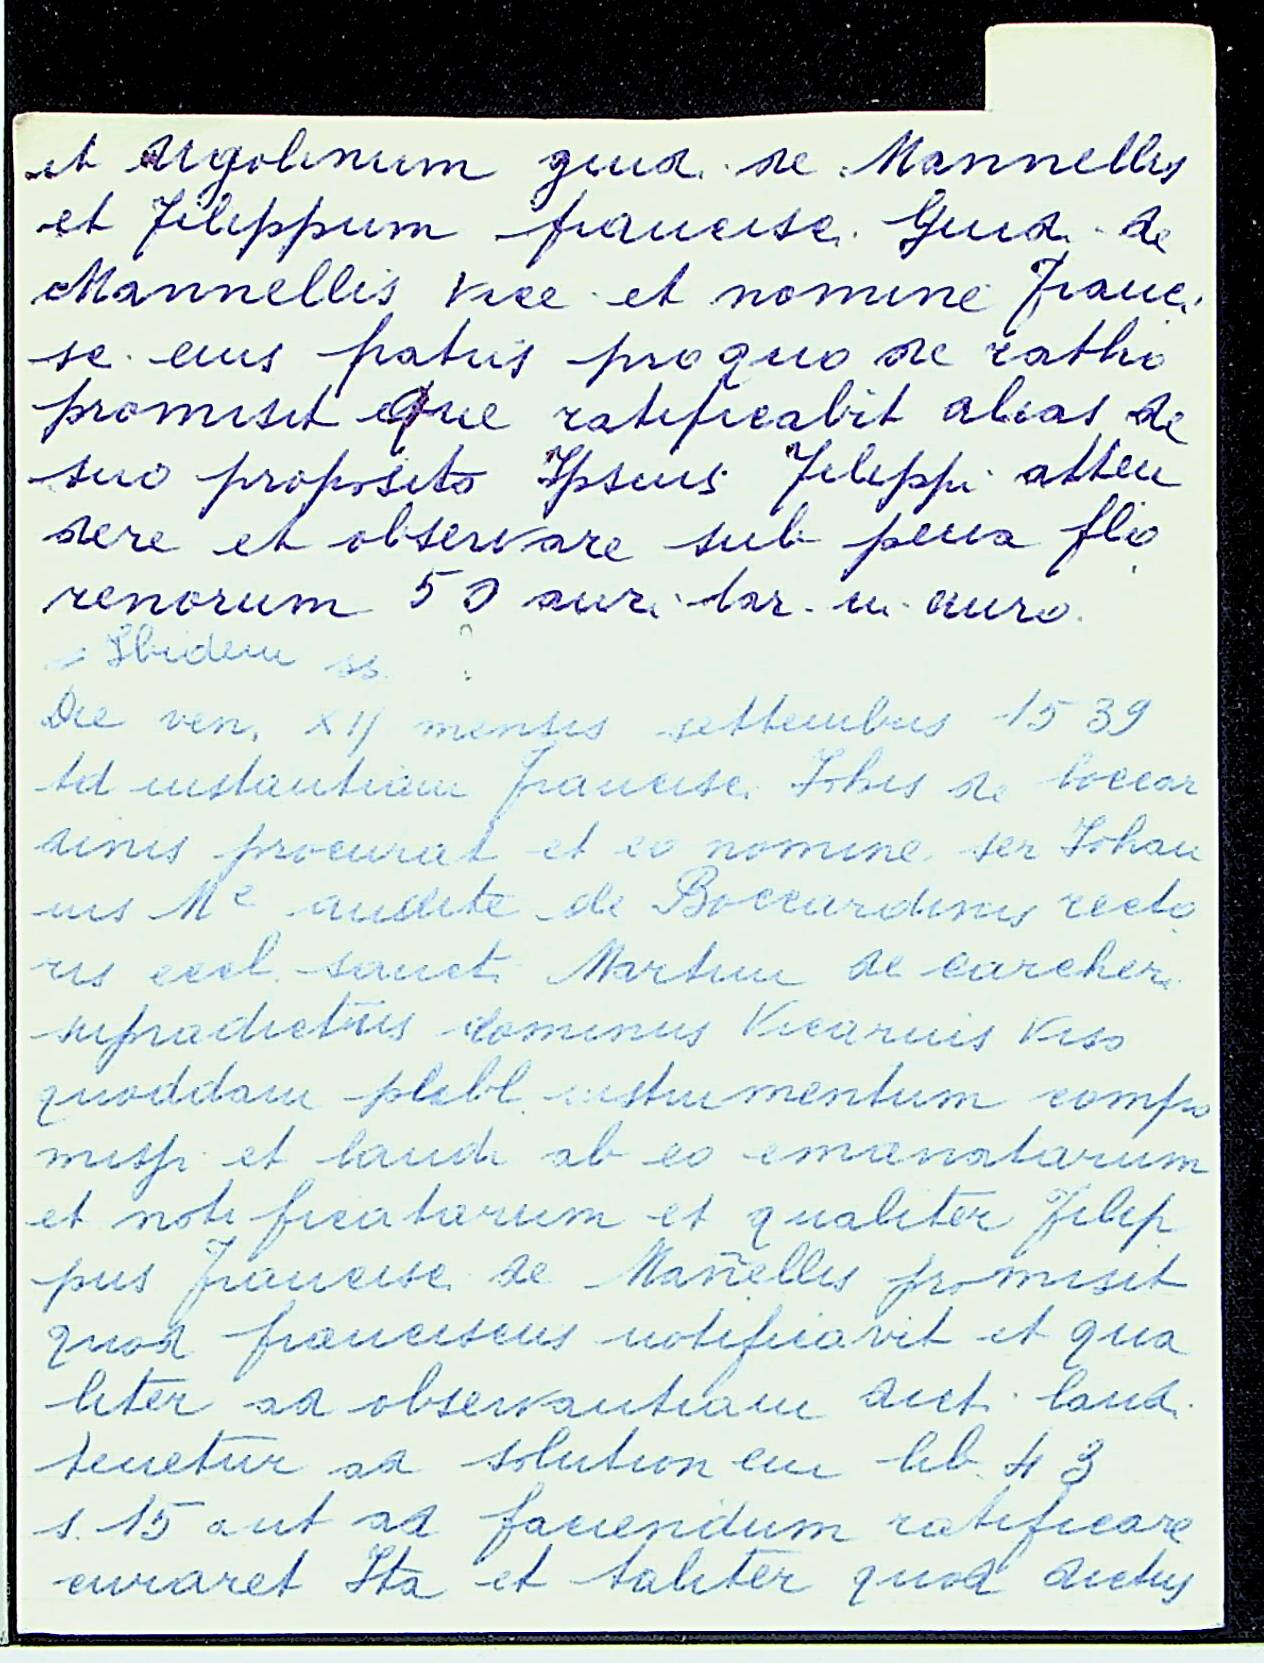 et Ugolinum guid. de Mannellis
et Filippum francisc. Guid. de
Mannellis vice et nomine Franci
sc. eius patris pro quo de ratho
promisit que ratificabit alias de
suo proposito Ipsius Filippi atten
dere et observare sub pena flo
renorum 50 aur. lar. in auro.
Ibidem ss. ?
Die ven. XII mensis settembris 1539
Ad instantiam Francisc. Johis de boccar
dinis procurat et eo nomine ser Johan
nis Mc de Boccardinis recto
ris eccl. sanct. Martini de carcheri
supradictus dominus Vicarius viso
quoddam plebl. instrumentum compro
missi et laudi ab eo emanatarum
et notificatarum et qualiter Filip
pus Francisc. de Mañellis promisit
quod franciscus notificavit et qua
liter ad observantiam dict. laud.
tenetur ad solutionem lib. 43
s. 15 aut ad faciendum ratificare
curaret Ita et taliter quod dictus